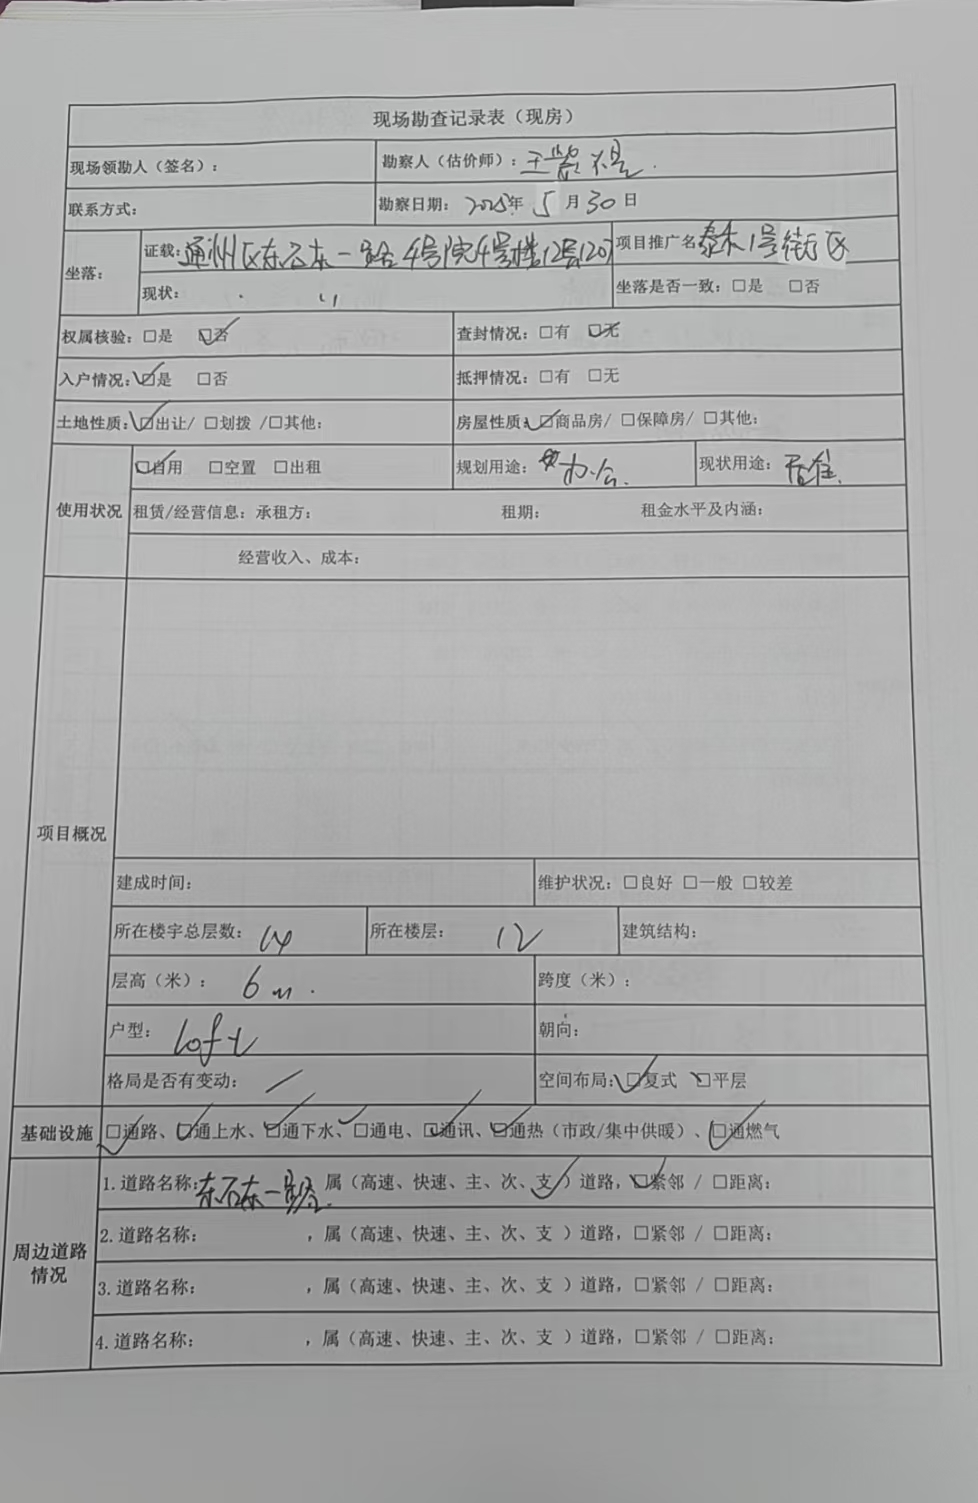 现场勘查记录表（现房）
现场领勘人（签名）： 勘察人（估价师）：王
联系方式： 勘察日期：2025年 5 月 30 日
坐落： 证载：通州区东石东一路4号院4号楼12层1207 项目推广名 泰禾1号街区
现状： 〃 坐落是否一致：□是 □否
权属核验：□是 ☑否 查封情况：□有 ☑无
入户情况：☑是 □否 抵押情况：□有 □无
土地性质：☑出让/ □划拨 /□其他： 房屋性质：☑商品房/ □保障房/ □其他：
使用状况 ☑自用 □空置 □出租 规划用途：办公 现状用途：居住
租赁/经营信息：承租方： 租期： 租金水平及内涵：
经营收入、成本：
项目概况
建成时间： 维护状况：□良好 □一般 □较差
所在楼宇总层数：14 所在楼层：12 建筑结构：
层高（米）：6m. 跨度（米）：
户型：loft 朝向：
格局是否有变动：／ 空间布局：☑复式 □平层
基础设施 ☑通路、☑通上水、☑通下水、☑通电、☑通讯、☑通热（市政/集中供暖）、☑通燃气
周边道路情况 1.道路名称：东石东一路 属（高速、快速、主、次、支✓）道路，☑紧邻 / □距离：
2.道路名称： ，属（高速、快速、主、次、支 ）道路，□紧邻 / □距离：
3.道路名称： ，属（高速、快速、主、次、支 ）道路，□紧邻 / □距离：
4.道路名称： ，属（高速、快速、主、次、支 ）道路，□紧邻 / □距离：